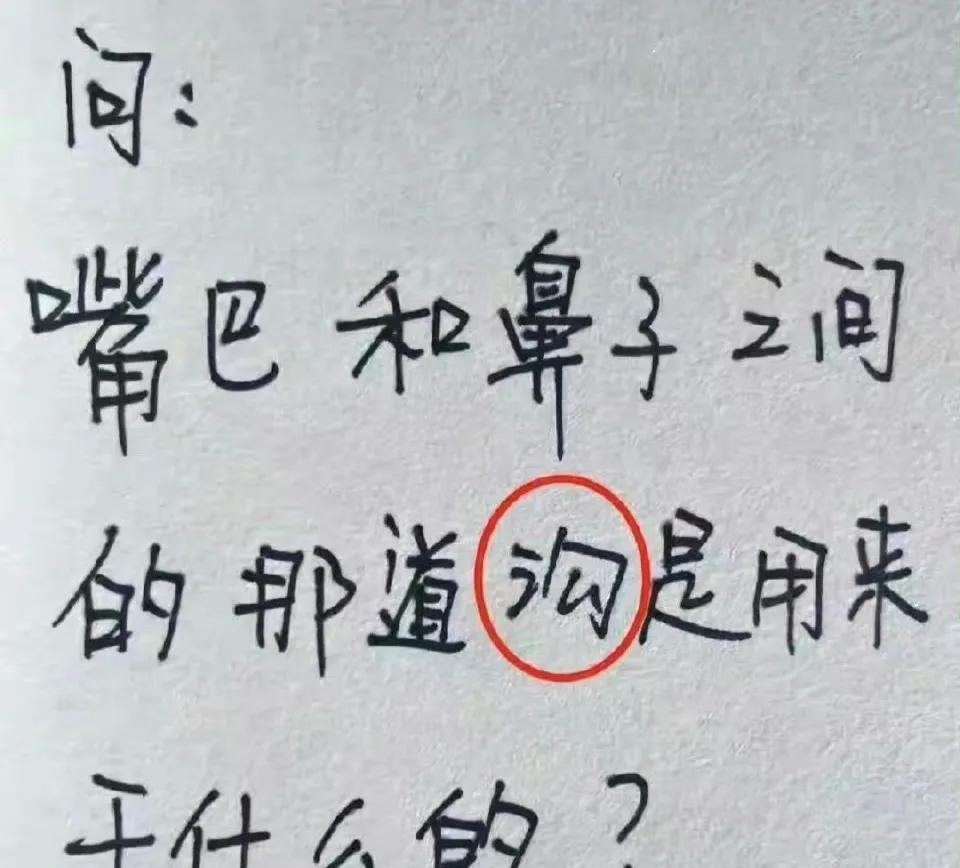 问：
嘴巴和鼻子之间
的那道沟是用来
干什么的？